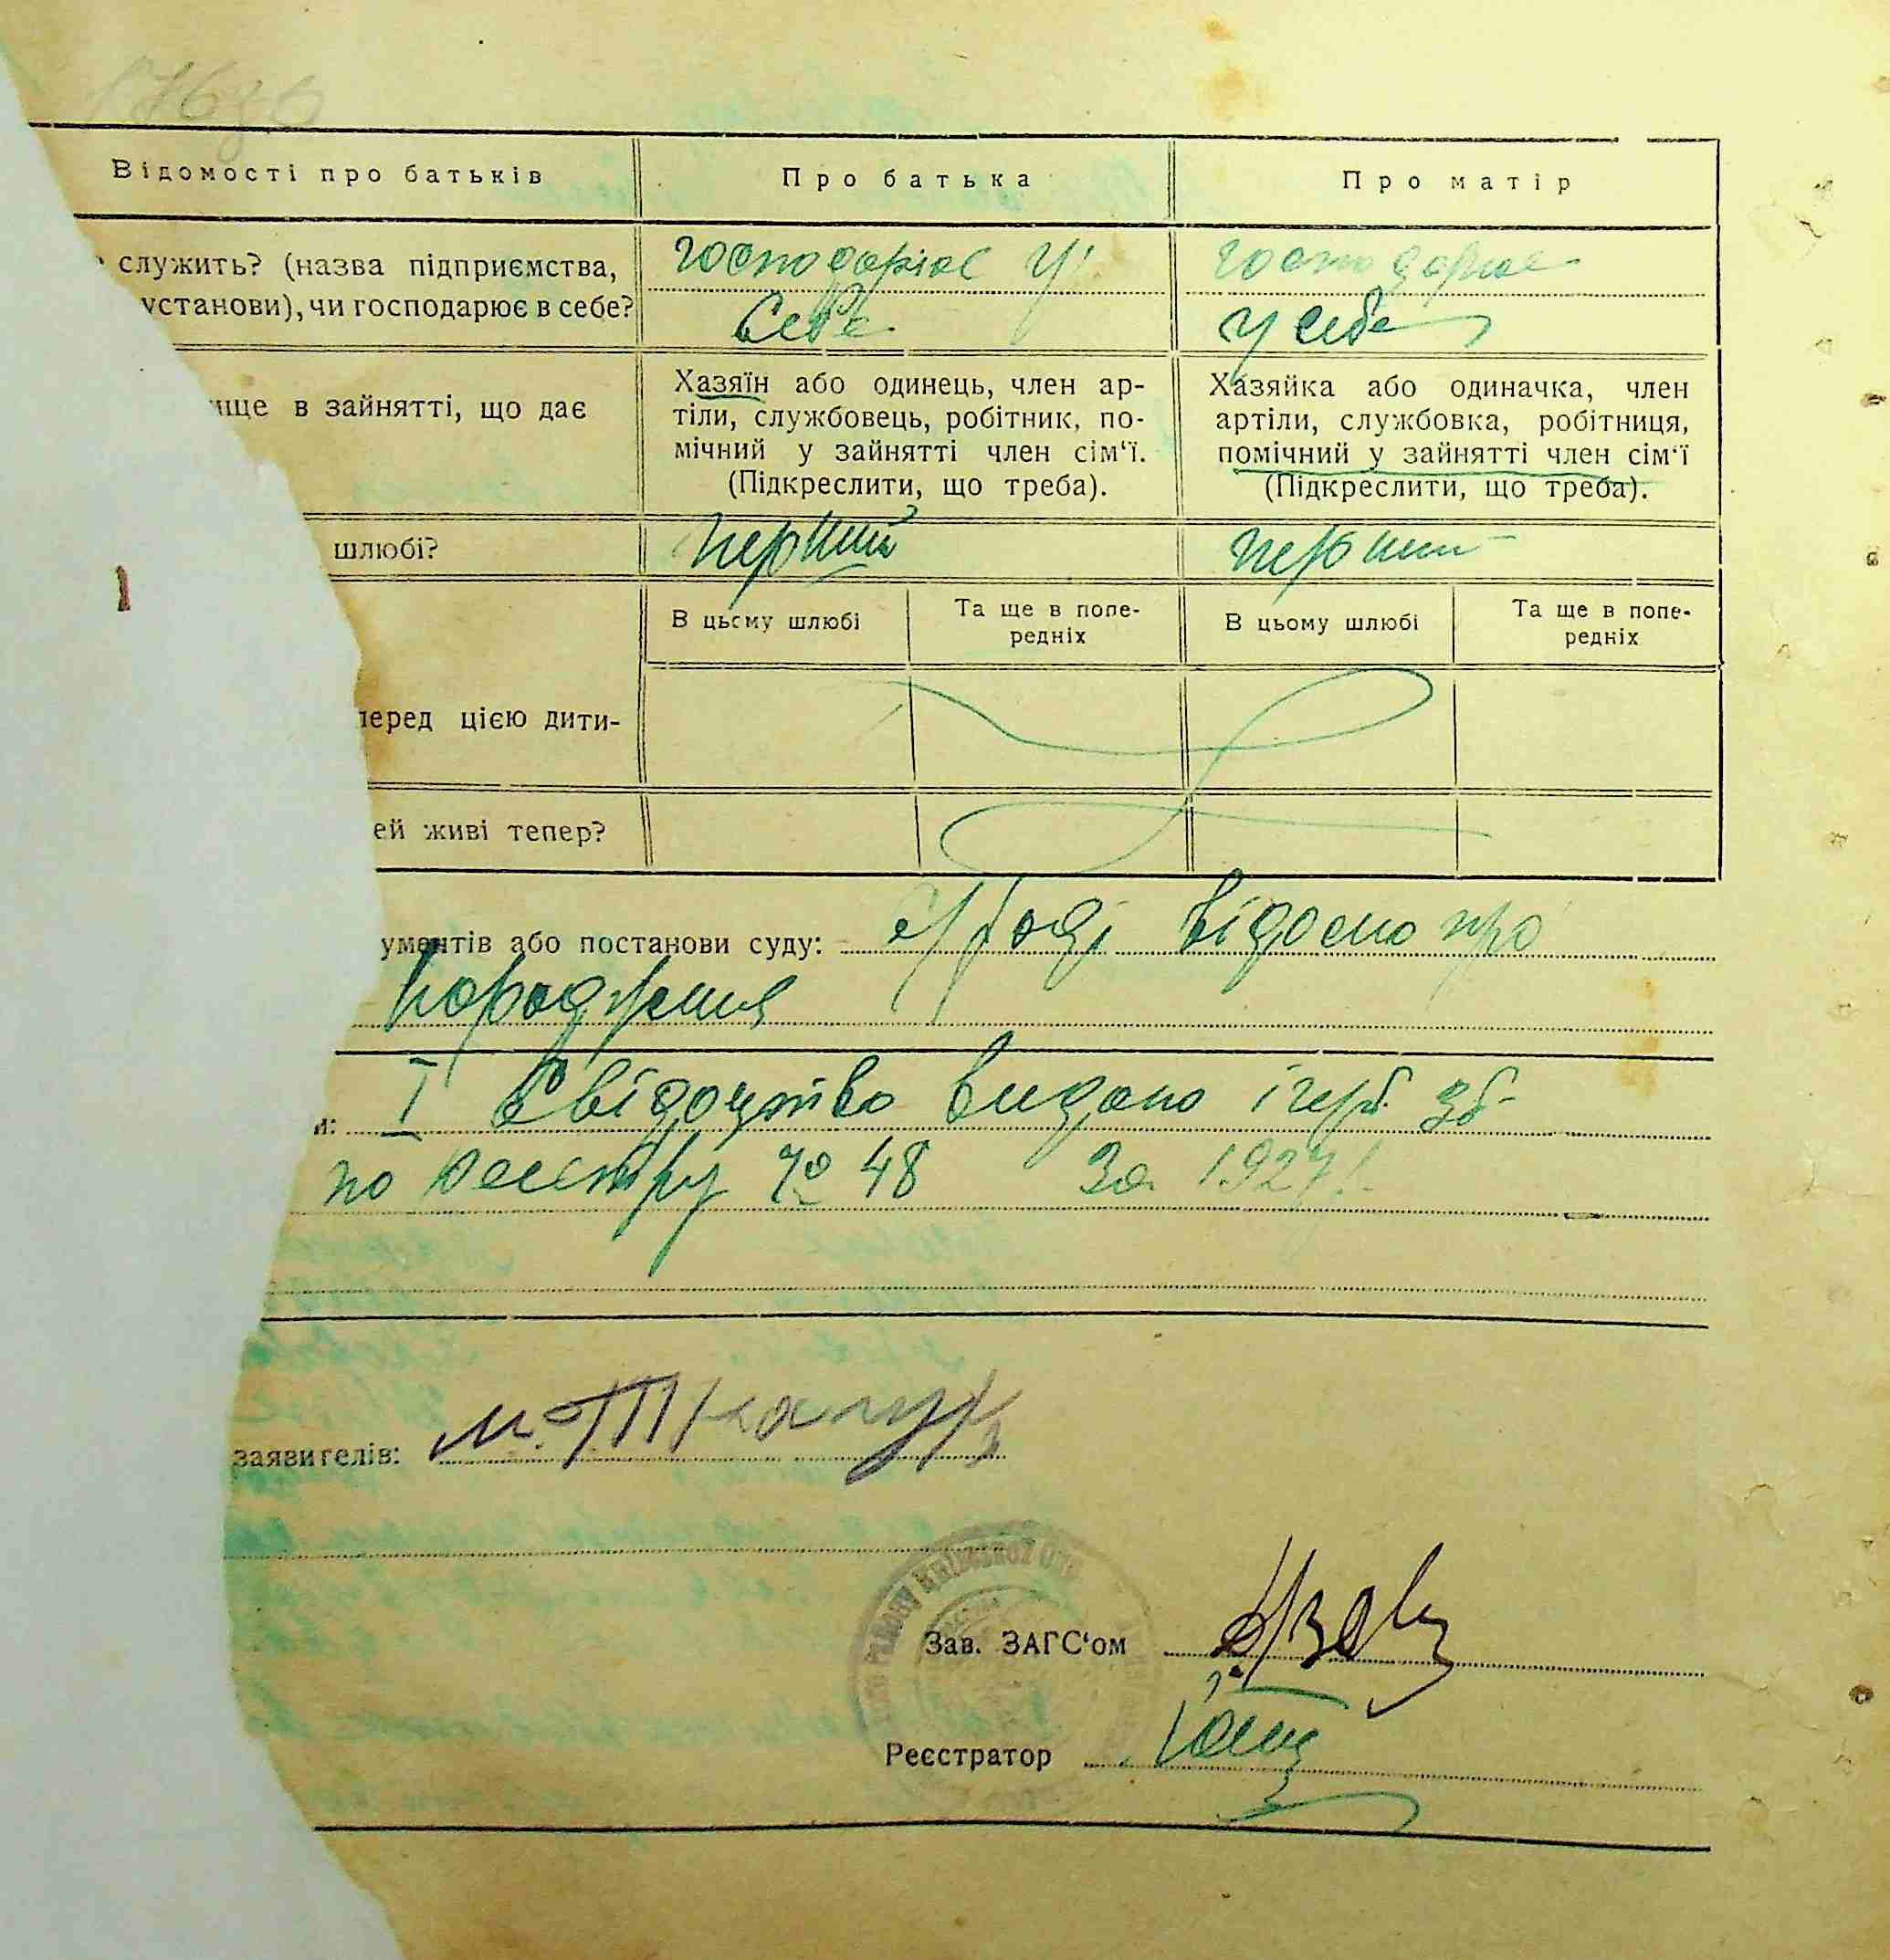 Відомості про батьків Про батька Про матір
служить? (назва підприємства, господарює у господарює
установи), чи господарює в себе? себе у себе
ище в зайнятті, що дає
Хазяїн або одинець, член ар-
тіли, службовець, робітник, по-
мічний у зайнятті член сім‘ї.
(Підкреслити, що треба).
Хазяйка або одиначка, член
артіли, службовка, робітниця,
помічний у зайнятті член сім‘ї
(Підкреслити, що треба).
шлюбі? перший перший
В цьому шлюбі
Та ще в попе-
редніх
В цьому шлюбі
Та ще в попе-
редніх
перед цією дити-
ей живі тепер?
ументів або постанови суду: відомо про
народження
и: І Свідоцтво видано
по реєстру № 48 за 1927
заявителів: М. Ткачук
Зав. ЗАГС‘ом
Реєстратор